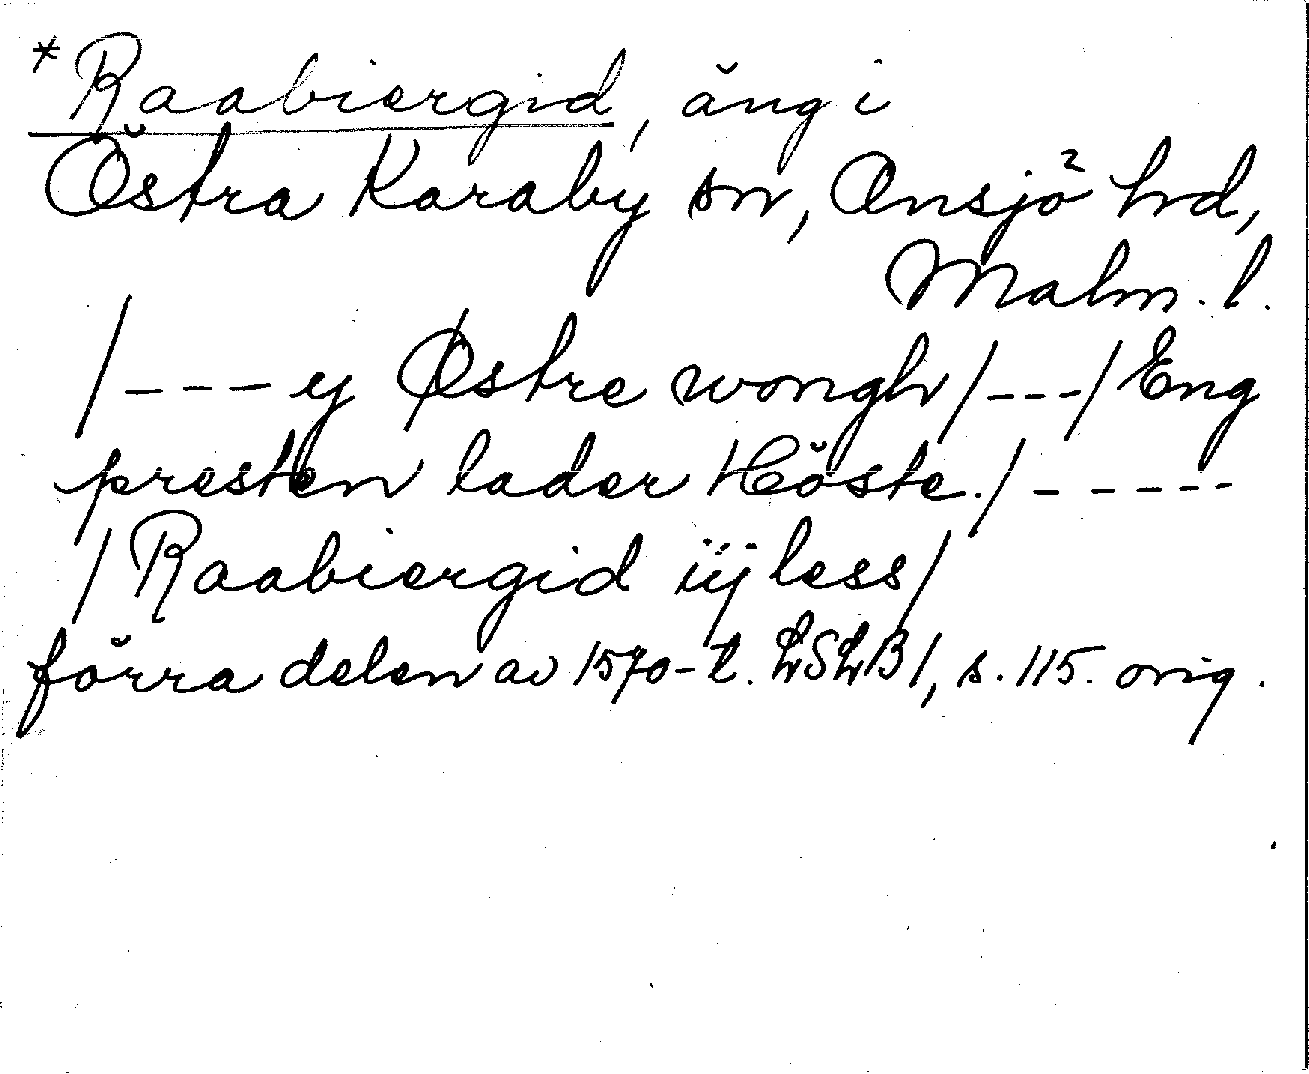 *Raabiergid, äng i
Östra Karaby sn, Onsjö hd,
Malm. l.
/---y Østre wongh/---/Eng
presten lader Höste./-----
/Raabiergid iij less/
förra delen av 1570-t. LSLB1, s. 115. orig.